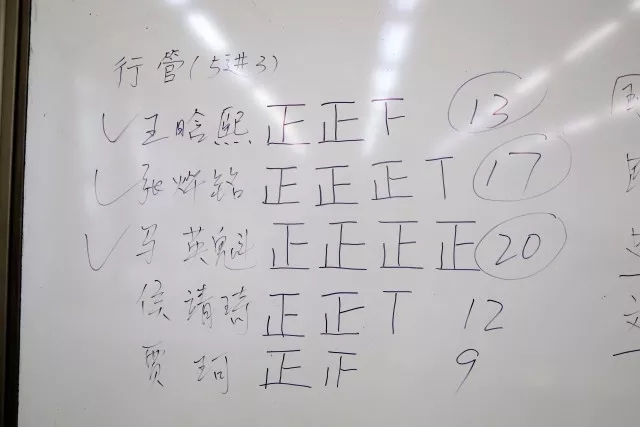 行管(5进3)
王晗熙 正正下 13
张烨铭 正正正丅 17
马英魁 正正正正 20
侯靖琦 正正丅 12
贾珂 正正 9